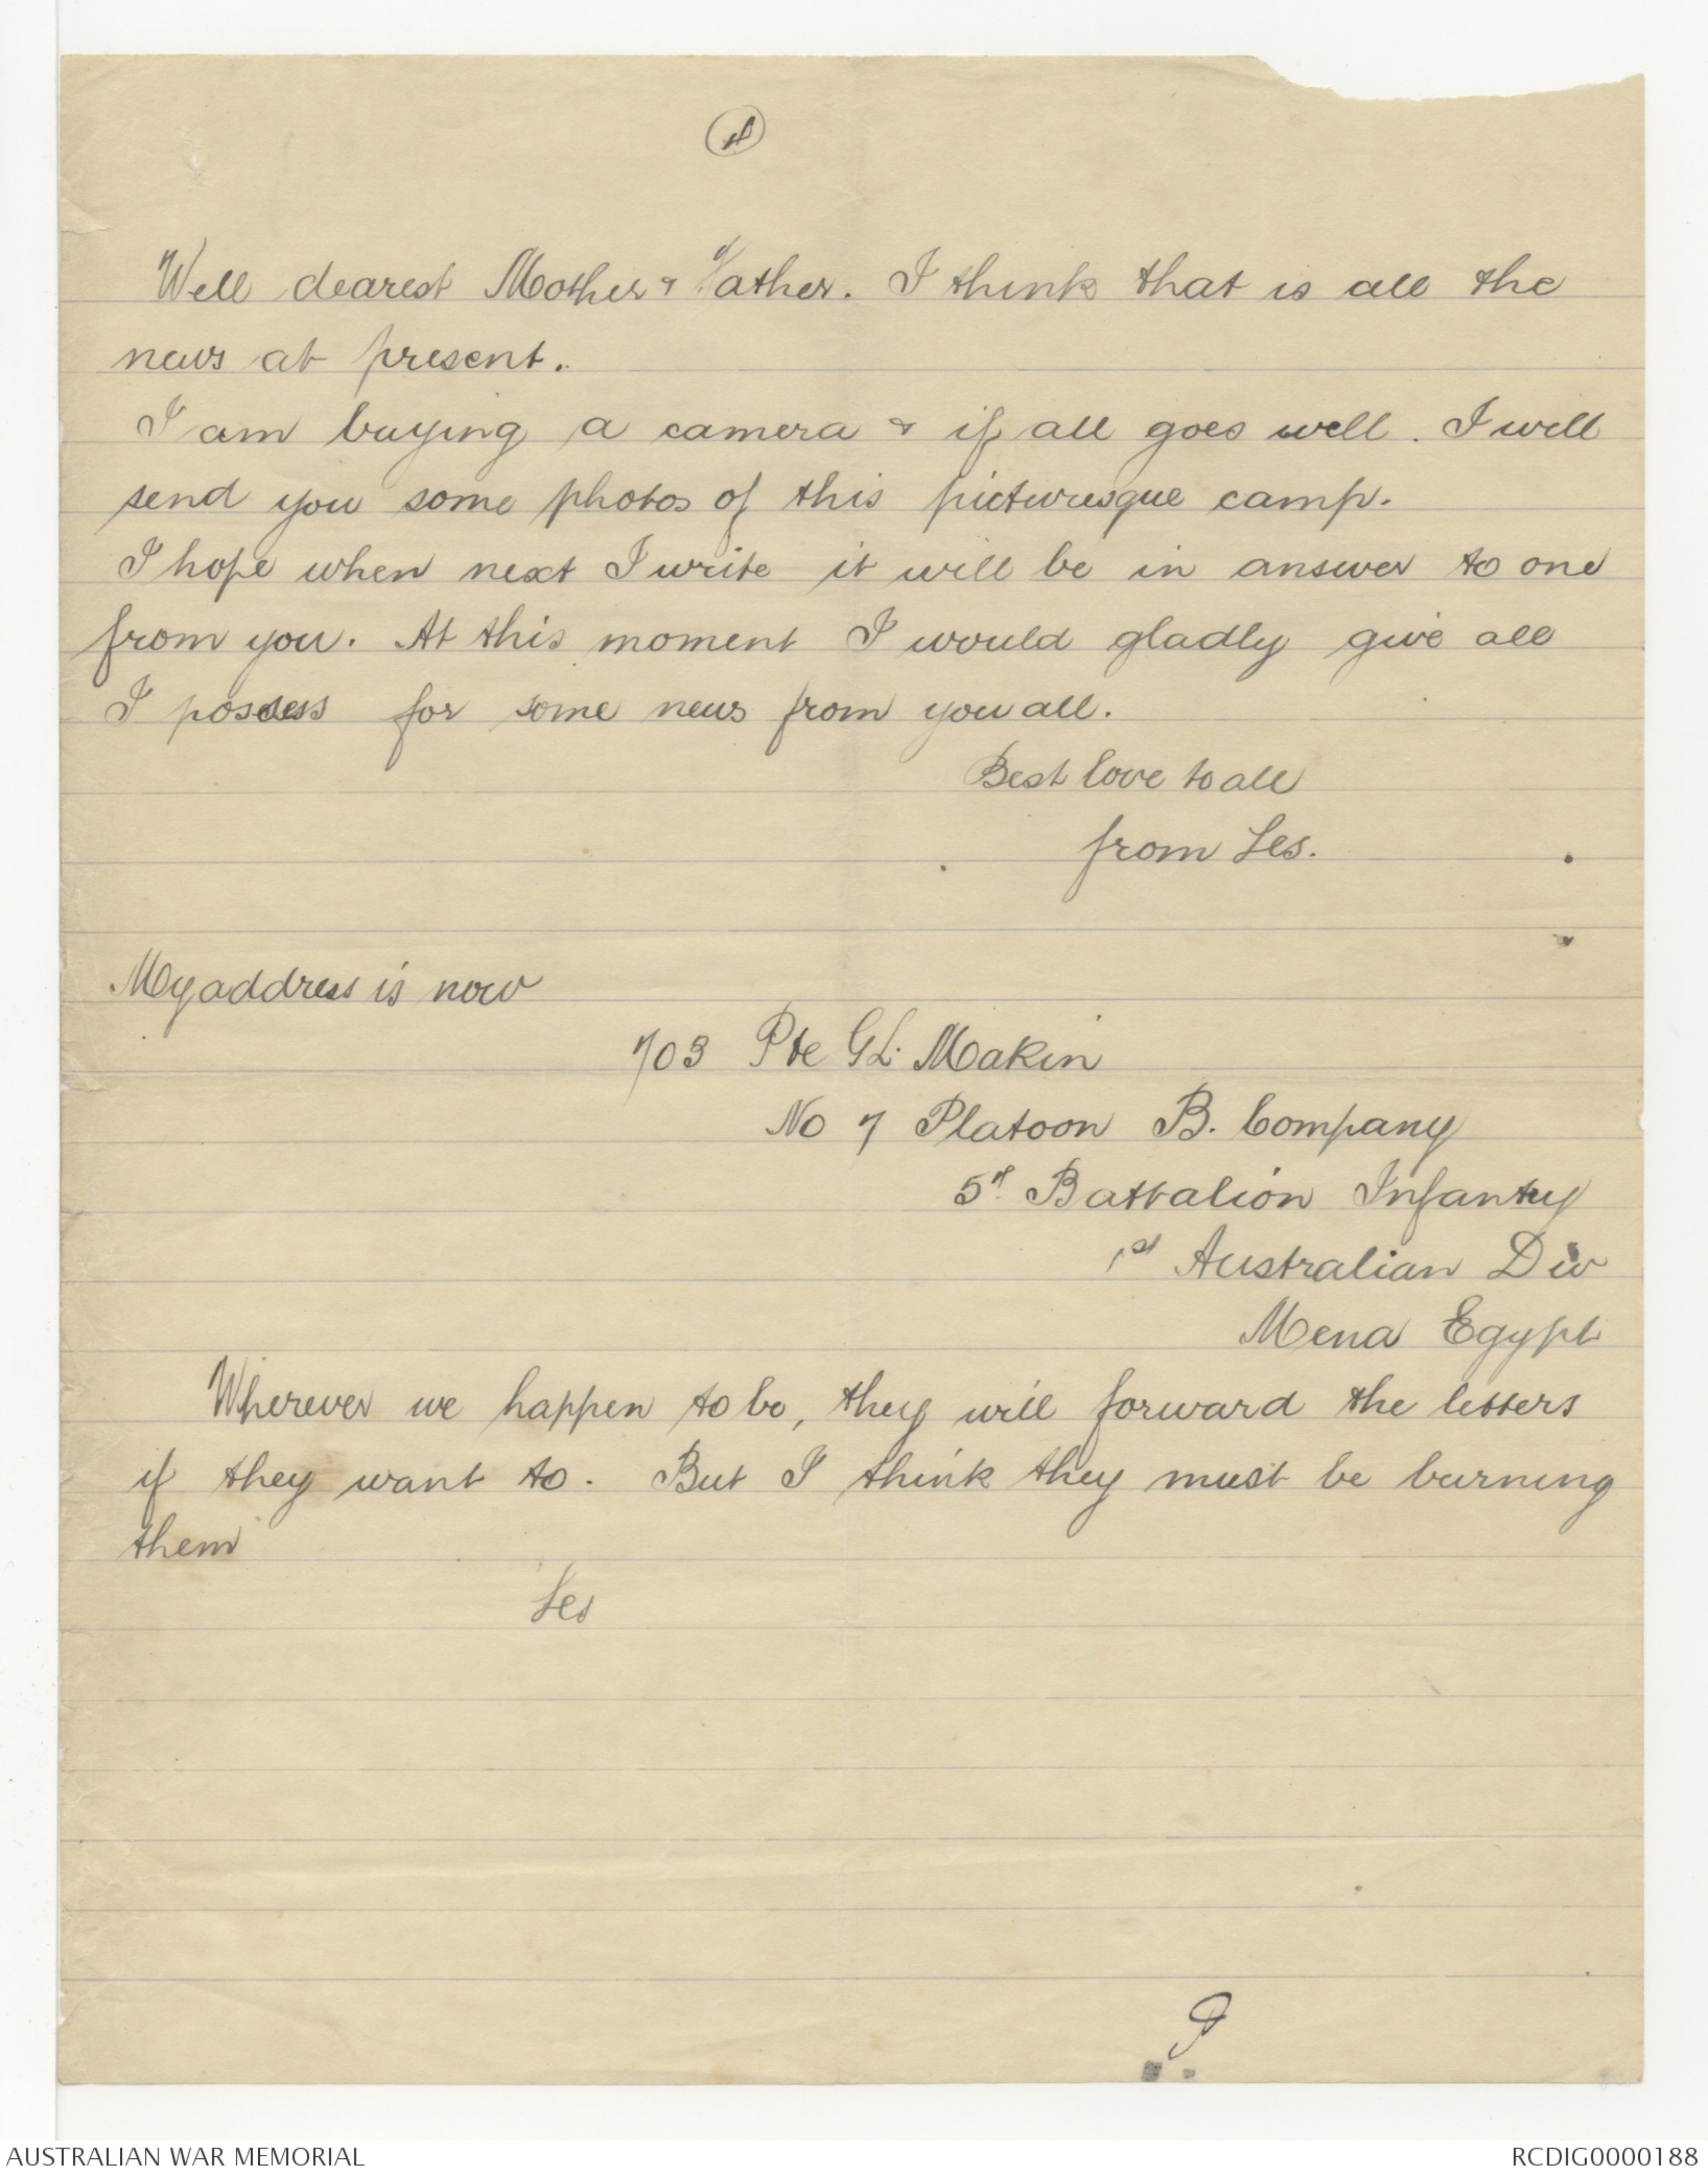 Well dearest Mother & Father. I think that is all the
news at present.
I am buying a camera & if all goes well. I will
send you some photos of this picturesque camp.
I hope when next I write it will be in answer to one
from you. At this moment I would gladly give all
I possess for some news from you all.
Best love to all
from Les.
My address is now
703 Pte G L. Makin
No 7 Platoon B. Company
5th Battalion Infantry
1st Australian Div
Mena Egypt
Wherever we happen to be, they will forward the letters
if they want to. But I think they must be burning
them
Les
AUSTRALIAN WAR MEMORIAL
RCDIG0000188